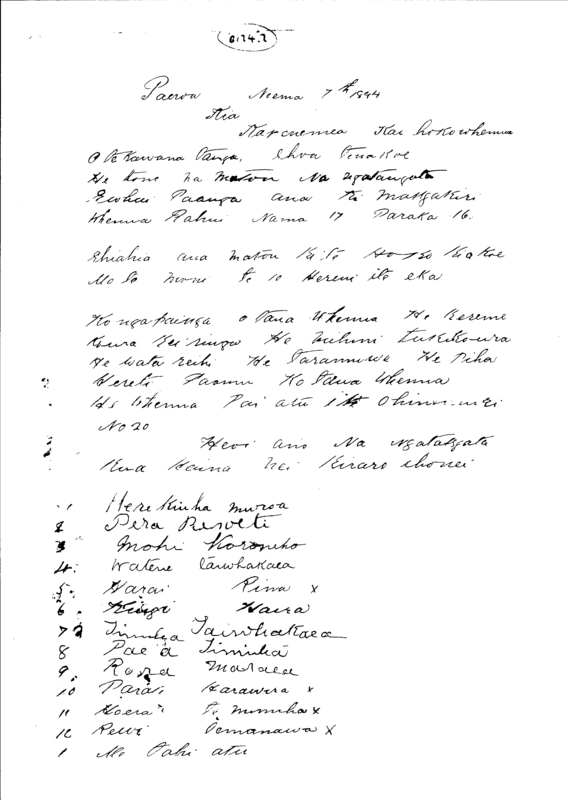 6124.2
Paeroa Noema 7th 1894
Kia
Kai hokowhenua
O te Kawanatanga, Ehoa tenakoe
He tono na matou Na ngatangata
Ewhai Paanga ana ki
Whenua Rahui Nama 17 Paraka 16.
Ehiahia ana matou kite Hoko kiakoe
Mo te moni te 10 Hereni ite eka
Ko ngapainga o tana Whenua He Kereme
Koura kei runga He
He wata He taramuwe He Piha
Hereti Ko taua Whenua
He Whenua Pai atu i Ohinemuri
No 20
Heoi ano Na Ngatangata
Kua Haina kei Kiraro ihonei
1 Here Kiniha muroa
2 Pera Reweti
3 Mohi Koroneho
4. Watene taiwhakaea
5. Harai Rina x
6. Kingi Haira
7 Timiha Taiwhakaea
8 Pae a Timiha
9. Rora Maraea
10 Para Harawira x
11 Hoera te mimiha x
12 Rewi Temanawa x
1 Me tahi atu